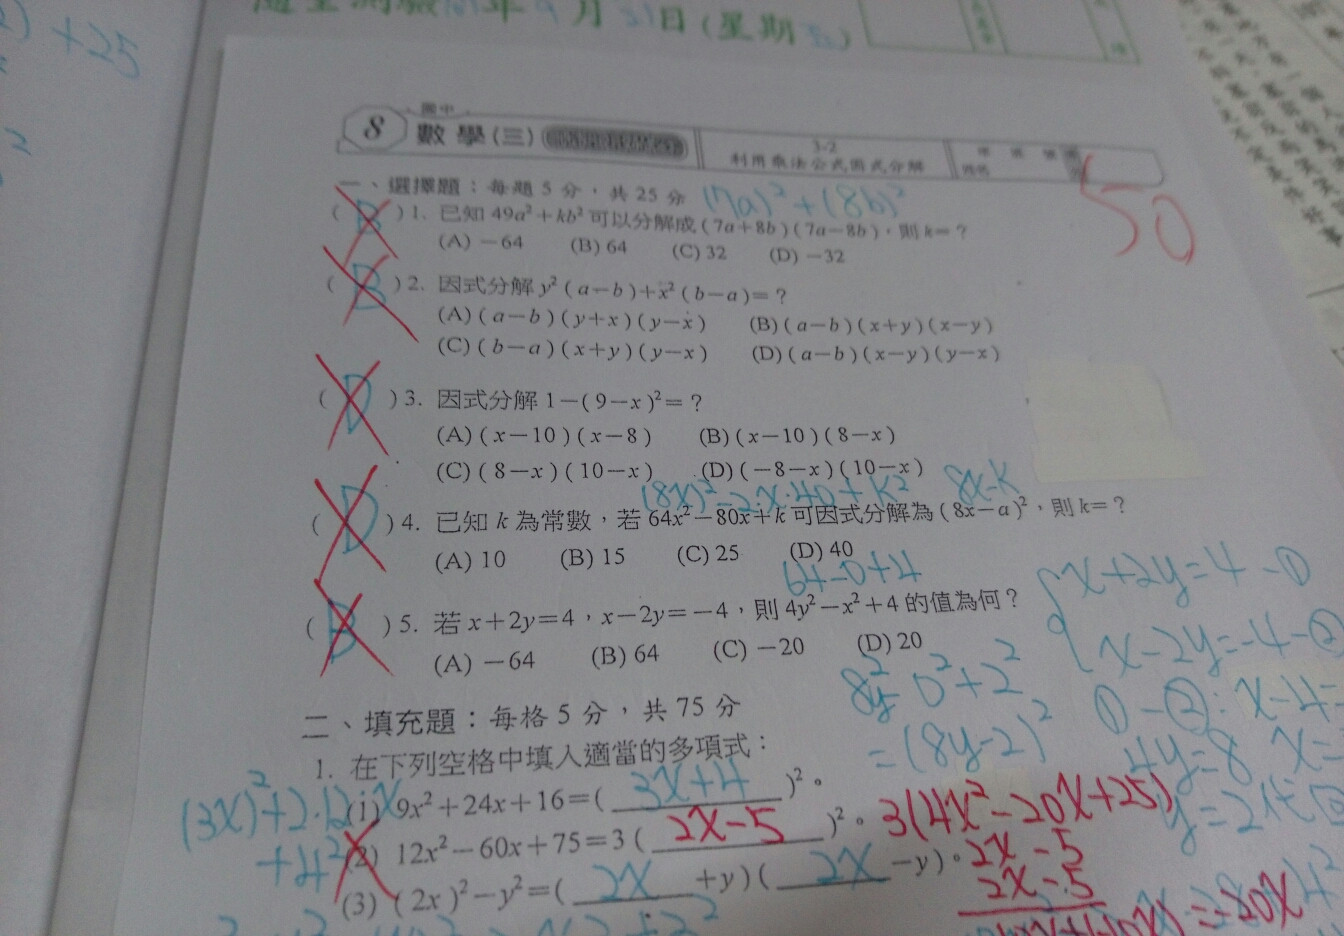 ) +25
2
隨堂測驗 年 9 月 21 日 (星期 五)
國中
8 數學(三)
3-2
利用乘法公式因式分解
50
一、選擇題：每題 5 分，共 25 分 (7a)²+(8b)²
( B ) 1. 已知 49a²+kb² 可以分解成 (7a+8b)(7a-8b)，則 k=？
(A) -64 (B) 64 (C) 32 (D) -32
( B ) 2. 因式分解 y²(a-b)+x²(b-a)=？
(A)(a-b)(y+x)(y-x) (B)(a-b)(x+y)(x-y)
(C)(b-a)(x+y)(y-x) (D)(a-b)(x-y)(y-x)
( D ) 3. 因式分解 1-(9-x)²=？
(A)(x-10)(x-8) (B)(x-10)(8-x)
(C)(8-x)(10-x) (D)(-8-x)(10-x)
(8x)²-2·x·40+k² 8x-k
( D ) 4. 已知 k 為常數，若 64x²-80x+k 可因式分解為 (8x-a)²，則 k=？
(A) 10 (B) 15 (C) 25 (D) 40
64-0+4
( B ) 5. 若 x+2y=4，x-2y=-4，則 4y²-x²+4 的值為何？
(A) -64 (B) 64 (C) -20 (D) 20
x+2y=4-①
x-2y=-4-②
8y²-0²+2²
①-②: x-4=
=(8y-2)²
4y=8 x=
y=2代②
二、填充題：每格 5 分，共 75 分
1. 在下列空格中填入適當的多項式：
(3x)²+2·12·x
+4²
(1) 9x²+24x+16=( 3x+4 )²。
(2) 12x²-60x+75=3( 2x-5 )²。 3(4x²-20x+25)
(3) (2x)²-y²=( 2x +y)( 2x -y)。 2x-5
2x-5
=-20x